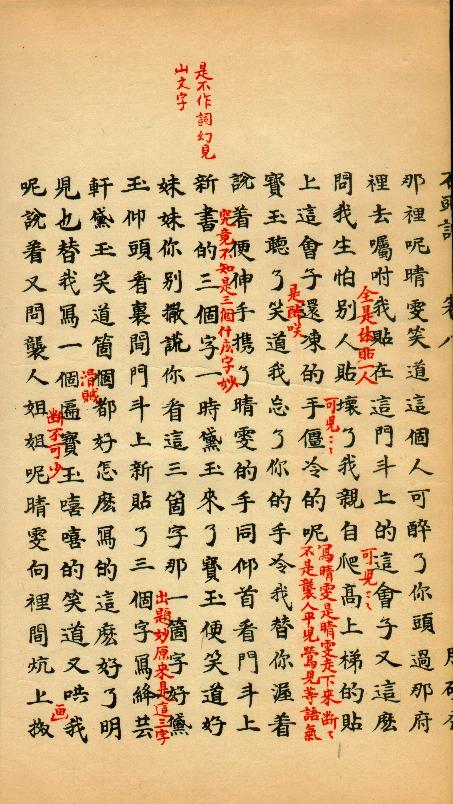 石頭記 卷八
那裡呢晴雯笑道這個人可醉了你頭過那府
裡去囑咐我貼在這門斗上的這會子又這麽
全是体貼一人
可見ミミ
問我生怕別人貼壞了我親自爬高上梯的貼
可見ミミ
上這會子還凍的手僵冷的呢
寫晴雯是晴雯走下來断ミ
不是襲人平兒鶯兒等語氣
是醉咲
寳玉聽了笑道我忘了你的手冷我替你渥着
說着便伸手携了晴雯的手同仰首看門斗上
是不作詞幻見
山文字
究竟不知是三個什庅字妙
新書的三個字一時黛玉來了寳玉便笑道好
妹妹你別撒謊你看這三箇字那一箇字好黛
出題妙原來是這三字
玉仰頭看裏間門斗上新貼了三個字寫絳芸
軒黛玉笑道箇個都好怎麽寫的這麽好了明
滑賊
兒也替我寫一個匾寳玉嘻嘻的笑道又哄我
断不可少
画
呢說着又問襲人姐姐呢晴雯向裡間炕上